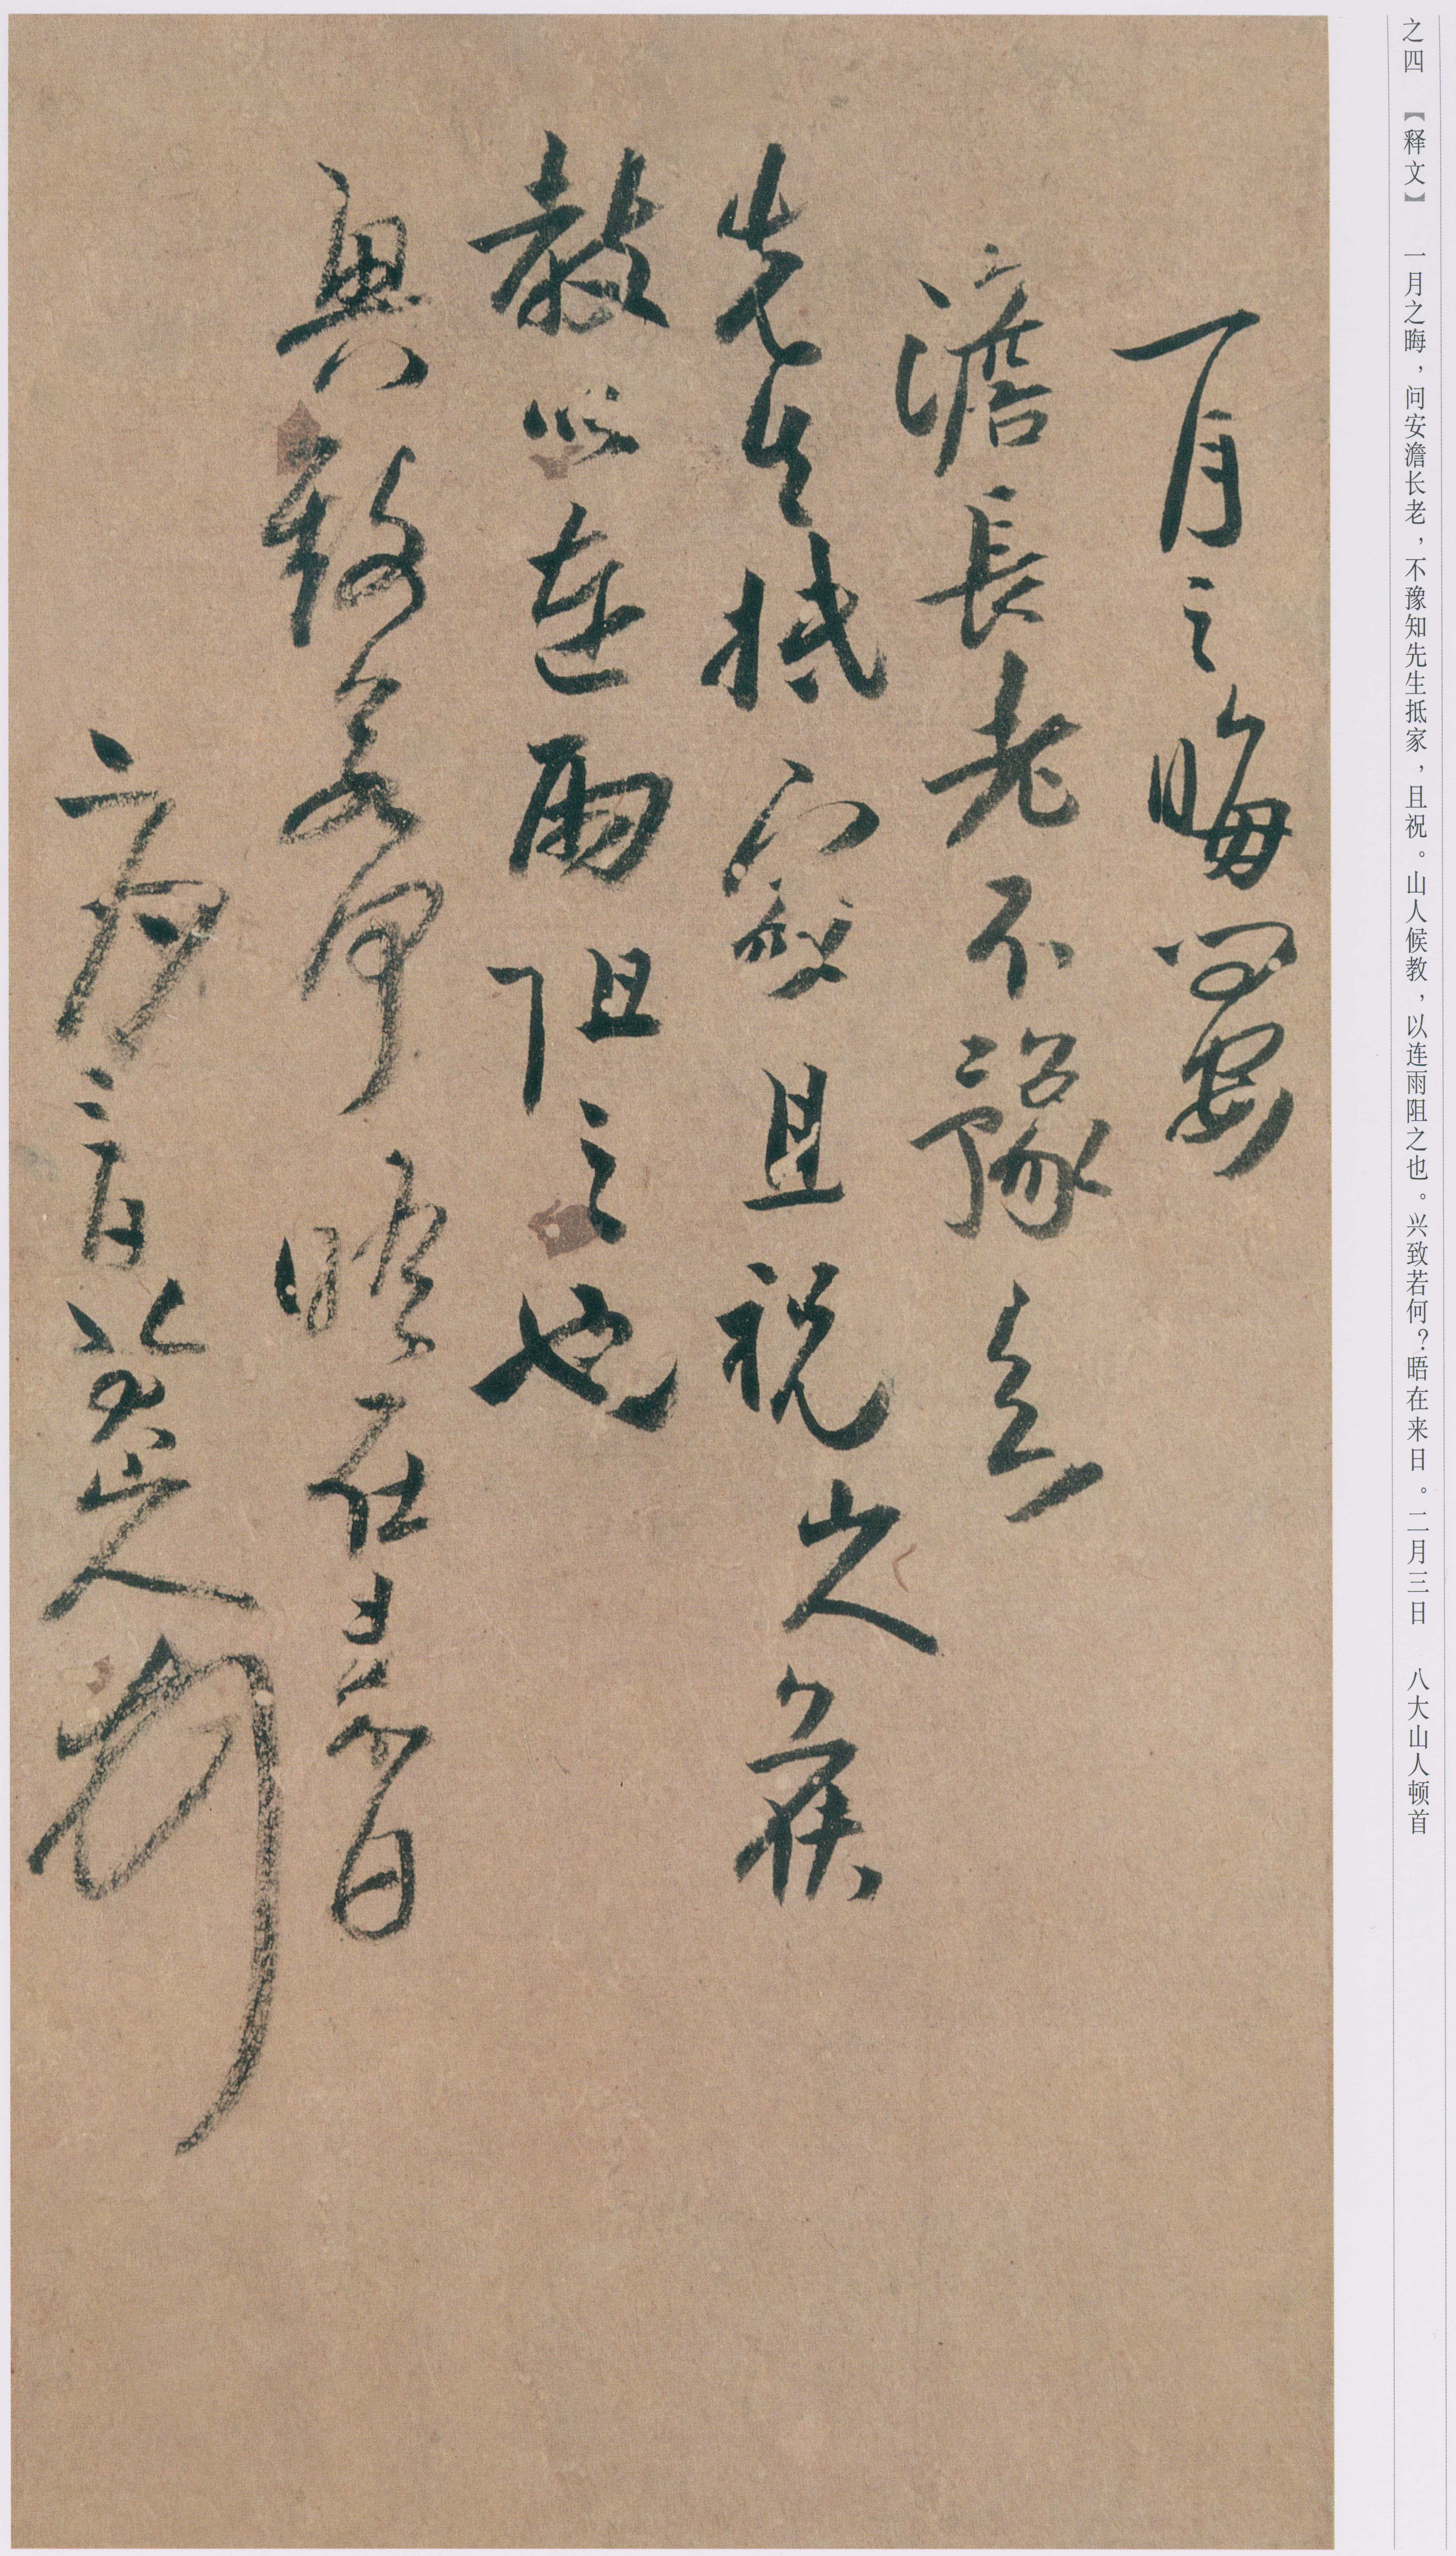 之四 【释文】 一月之晦，问安澹长老，不豫知先生抵家，且祝。山人候教，以连雨阻之也。兴致若何？晤在来日。二月三日 八大山人顿首
一月之晦問安
澹長老不豫知
先生抵家且祝山人候
教以連雨阻之也
興致若何晤在來日
二月三日八大山人頓首